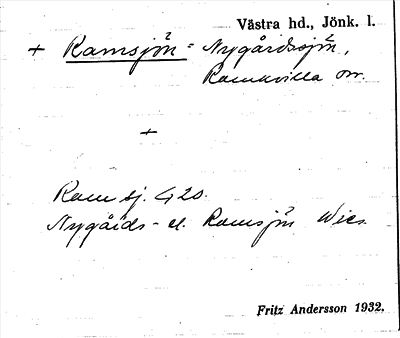 Västra hd., Jönk. l.
+ Ramsjön = Nygårdssjön,
Ramkvilla sn.
+
Ramsj. G 20.
Nygårds- el. Ramsjön Wies.
Fritz Andersson 1932.